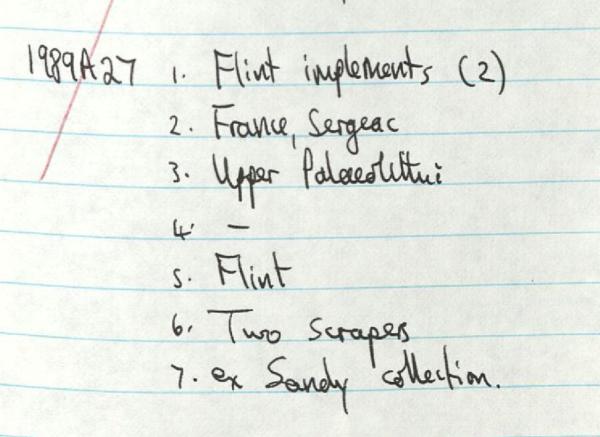 1989A27 1. Flint implements (2)
2. France, Sergeac
3. Upper Palaeolithic
4. –
5. Flint
6. Two scrapers
7. ex Sandy collection.